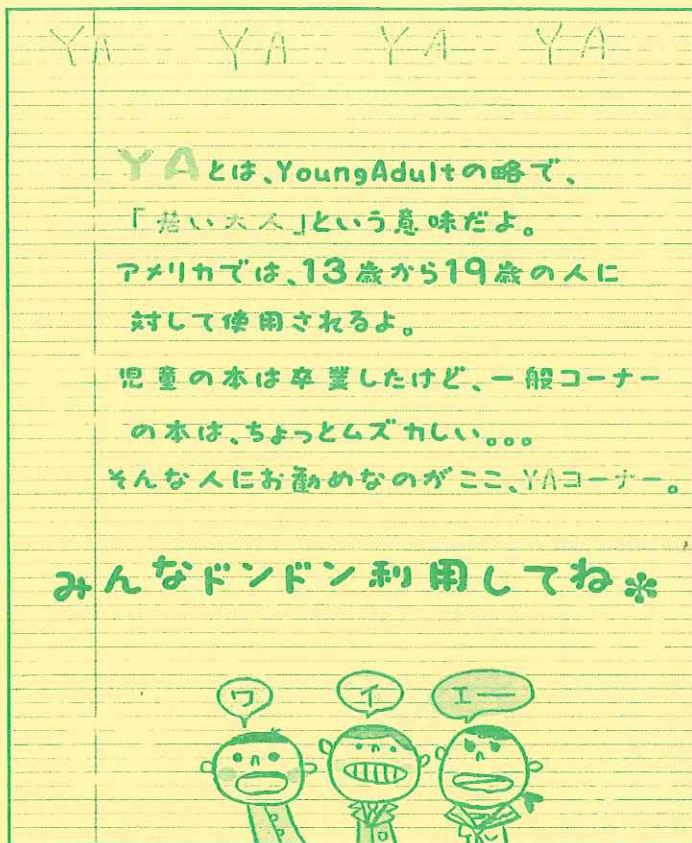 YA YA YA YA
YAとは、YoungAdultの略で、
「若い大人」という意味だよ。
アメリカでは、13歳から19歳の人に
対して使用されるよ。
児童の本は卒業したけど、一般コーナー
の本は、ちょっとムズカしい。。。
そんな人にお勧めなのがここ、YAコーナー。
みんなドンドン利用してね＊
ワ イ エー